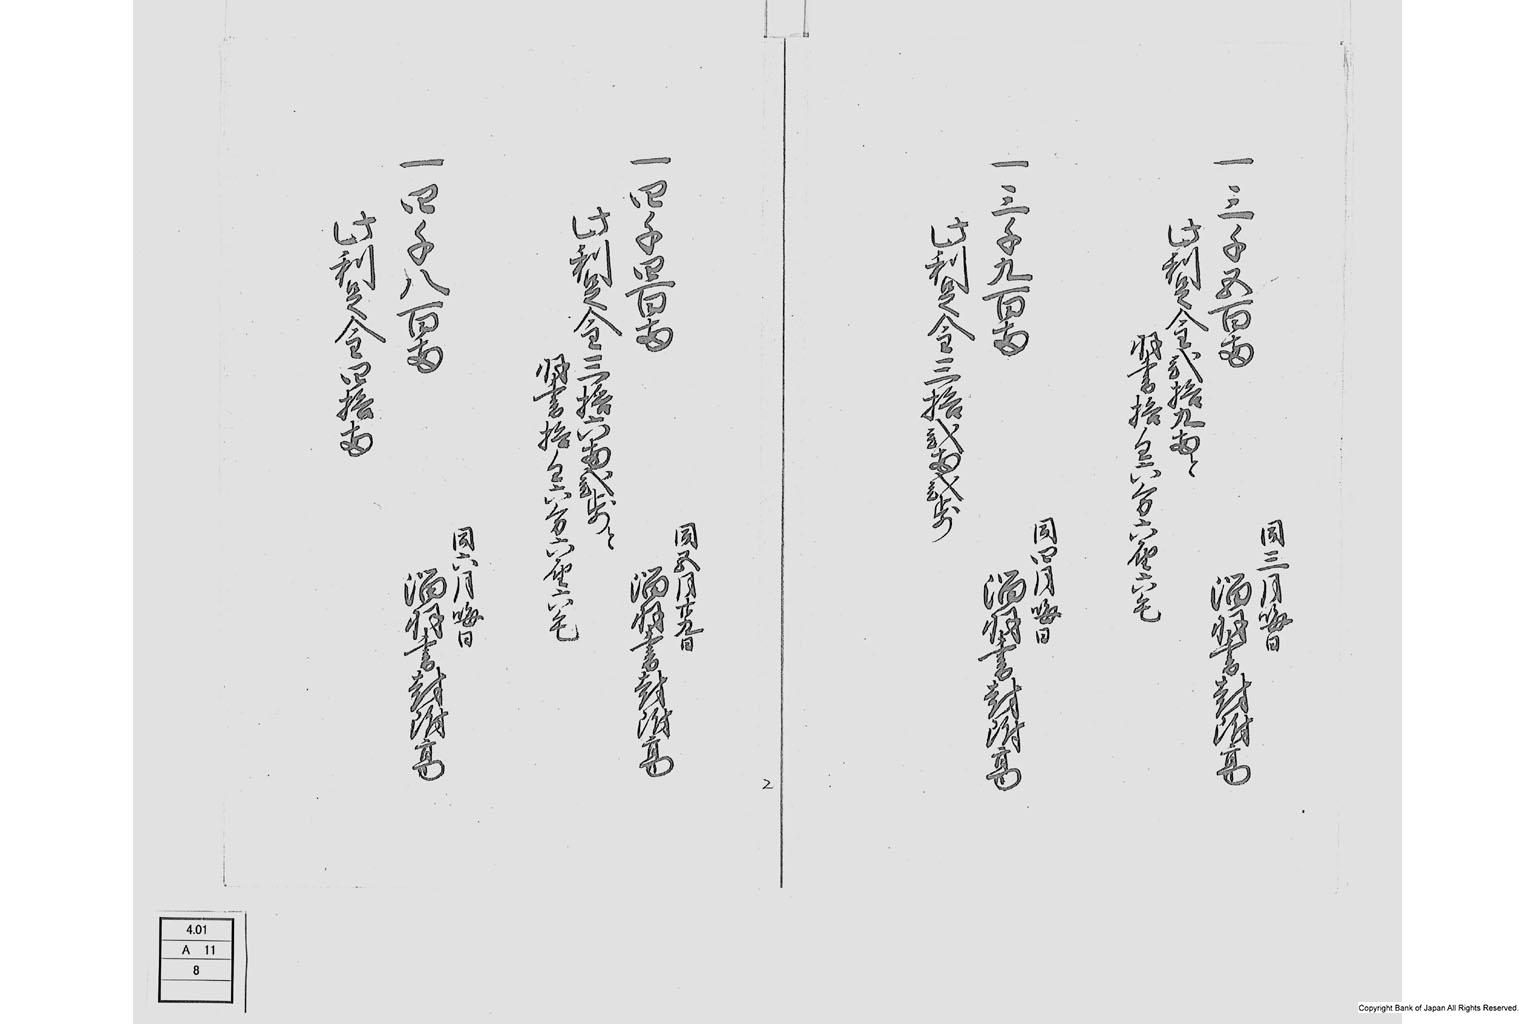 同三月晦日
一三千五百両　溜羽書封附高
此利足金弐拾九両と
羽書拾匁六分六厘六毛
同四月晦日
一三千九百両　溜羽書封附高
此利足金三拾弐両弐歩
同五月廿九日
一四千四百両　溜羽書封附高
此利足金三拾六両弐歩と
羽書拾匁六分六厘六毛
同六月晦日
一四千八百両　溜羽書封附高
此利足金四拾両
2
4.01
A 11
8
Copyright Bank of Japan All Rights Reserved.